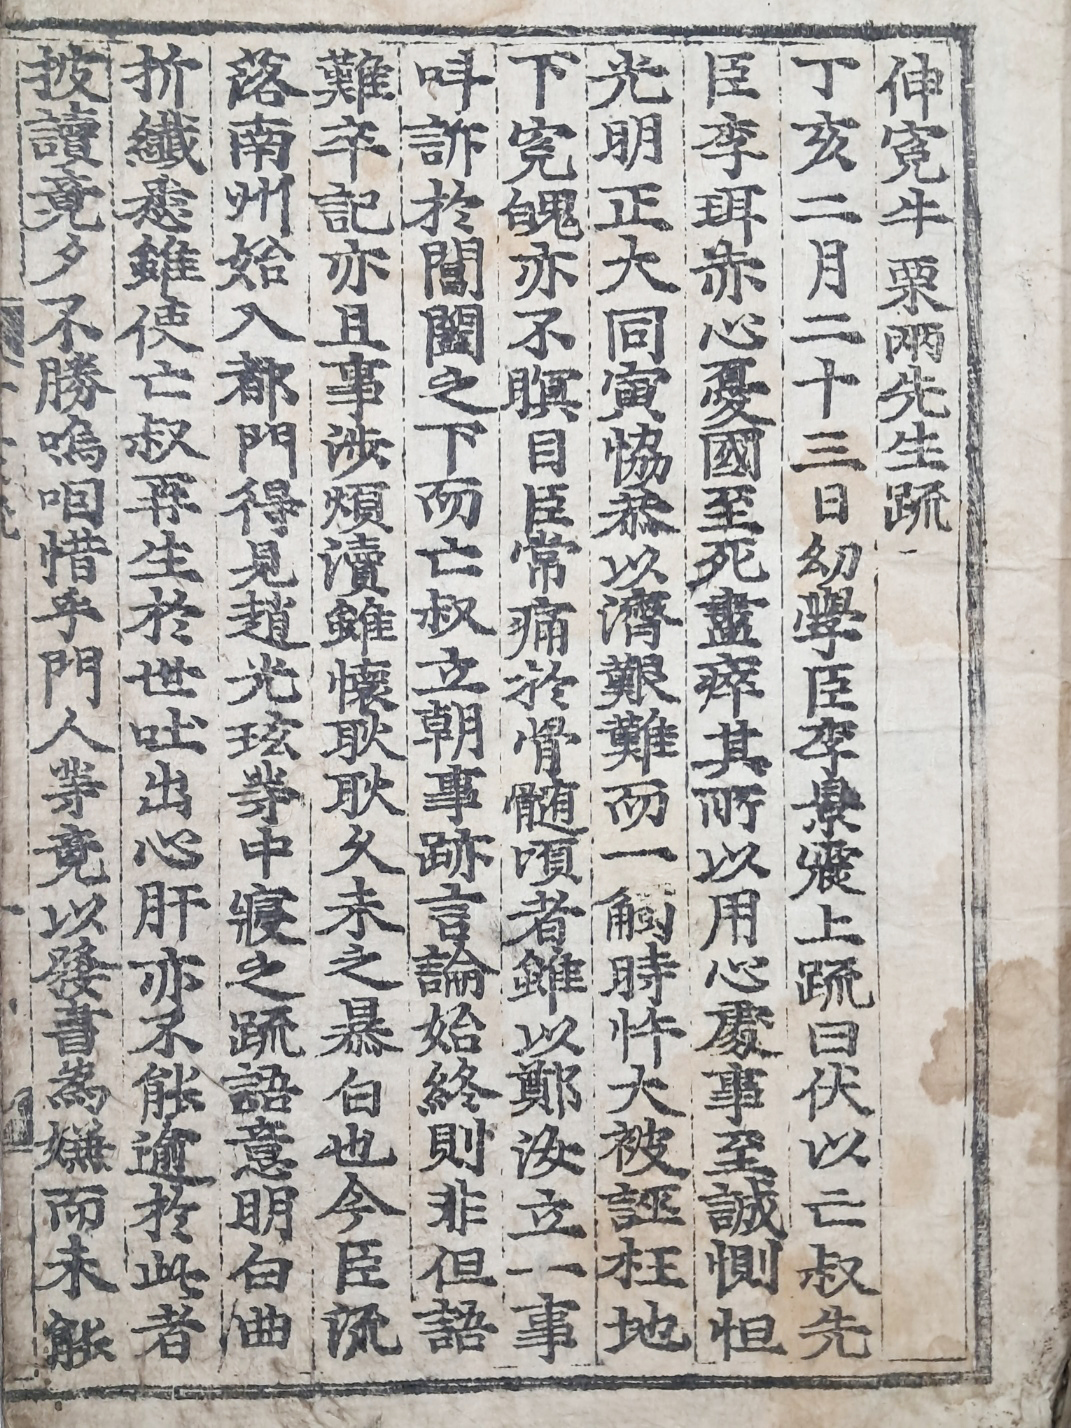 伸寃牛栗兩先生疏
丁亥二月二十三日幼學臣李景震上疏曰伏以亡叔先
臣李珥赤心憂國至死盡瘁其所以用心處事至誠惻怛
光明正大同寅恊恭以濟艱難而一觸時忤大被誣枉地
下寃魄亦不瞑目臣常痛於骨髓頃者雖以鄭汝立一事
呌訴於閶闔之下而亡叔立朝事跡言論始終則非但語
難卒記亦且事涉煩瀆雖懷耿耿久未之暴白也今臣流
落南州始入都門得見趙光玹等中寢之疏語意明白曲
折纖悉雖使亡叔再生於世吐出心肝亦不能逾於此者
披讀竟夕不勝嗚咽惜乎門人等竟以發書爲嫌而未能